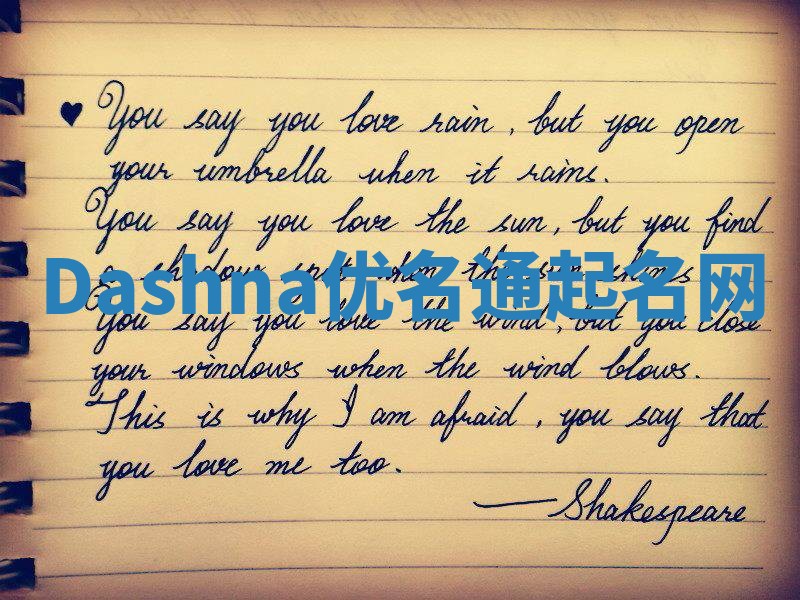 ♥ You say you love rain, but you open
your umbrella when it rains.
You say you love the sun, but you find
a shadow spot when the sun shines
Dashna优名通起名网
You say you love the wind, but you close
your windows when the wind blows.
This is why I am afraid, you say that
you love me too.
—Shakespeare